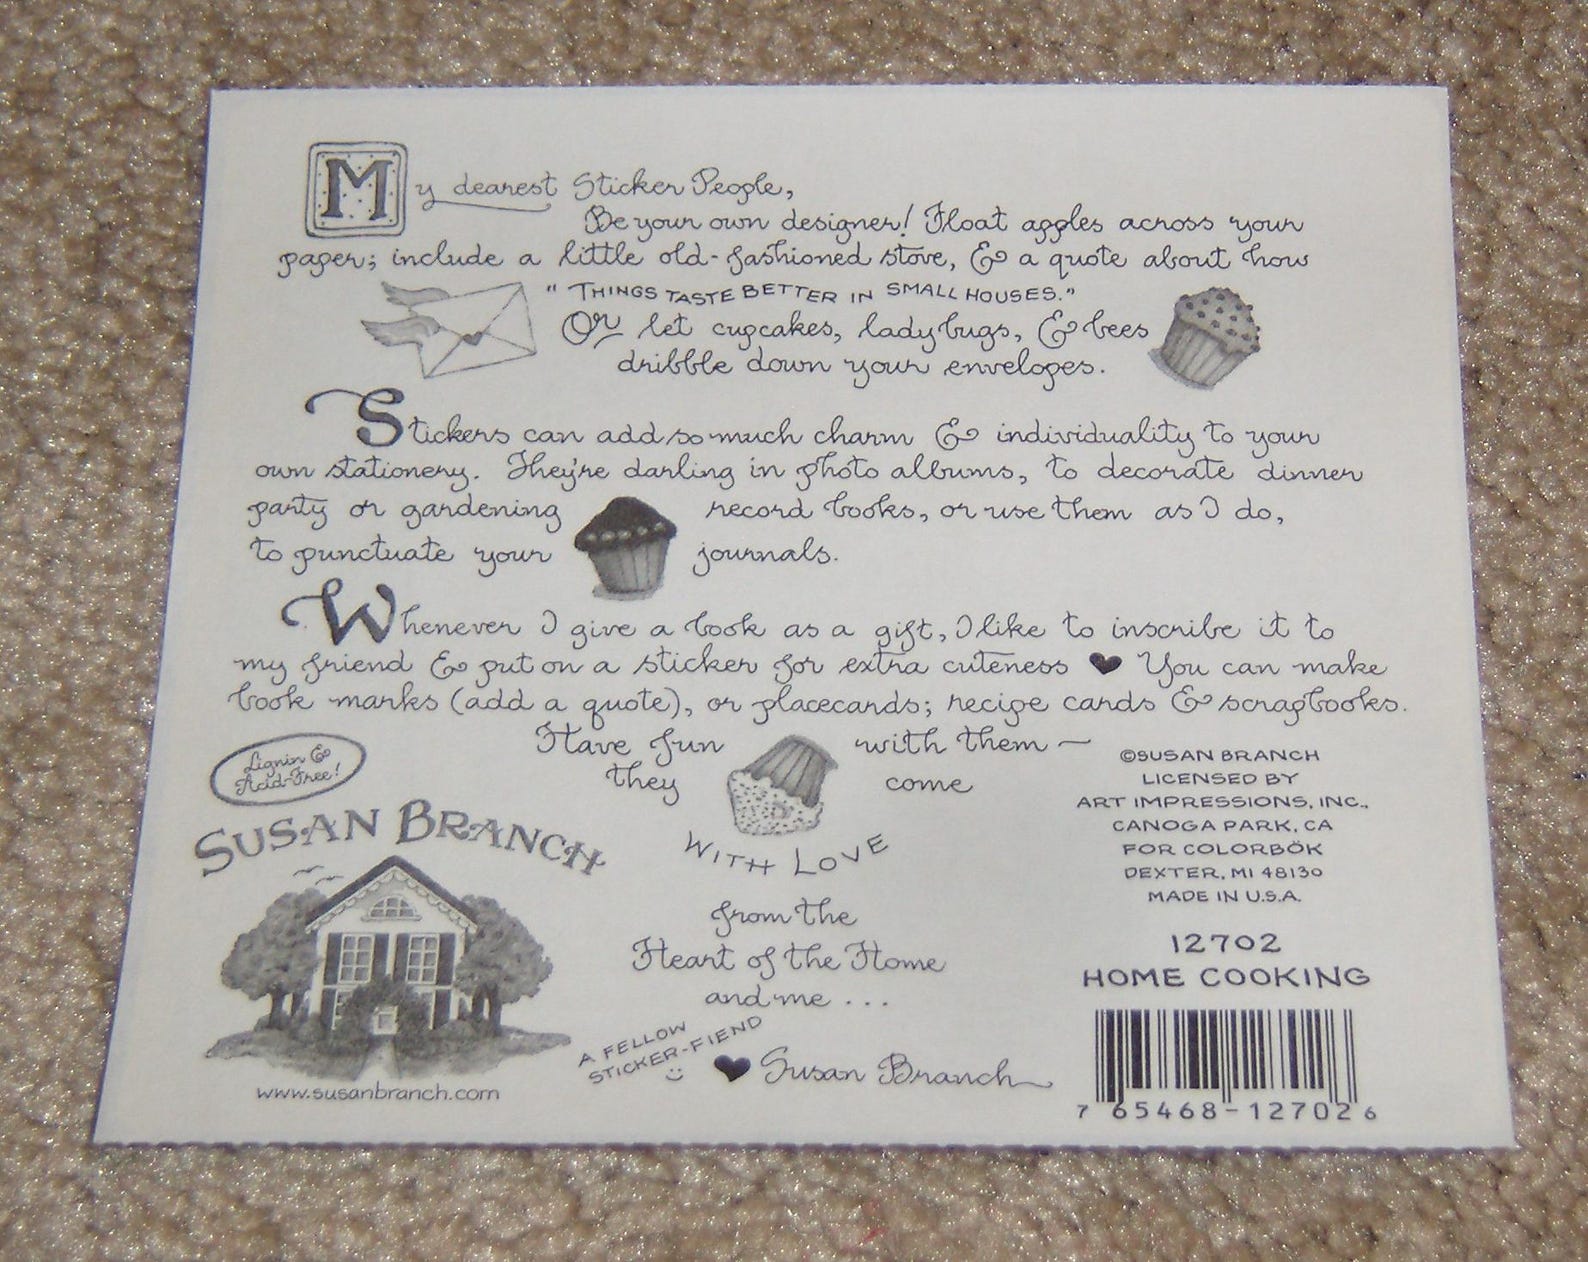 My dearest Sticker People,
Be your own designer! Float apples across your
paper; include a little old-fashioned stove, & a quote about how
"THINGS TASTE BETTER IN SMALL HOUSES."
Or let cupcakes, ladybugs, & bees
dribble down your envelopes.
Stickers can add so much charm & individuality to your
own stationery. They're darling in photo albums, to decorate dinner
party or gardening record books, or use them as I do,
to punctuate your journals.
Whenever I give a book as a gift, I like to inscribe it to
my friend & put on a sticker for extra cuteness ♥ You can make
book marks (add a quote), or placecards; recipe cards & scrapbooks.
Have fun with them ~
they come
WITH LOVE
from the
Heart of the Home
and me ...
A FELLOW
STICKER-FIEND
♥ Susan Branch
Lignin &
Acid-Free!
SUSAN BRANCH
www.susanbranch.com
©SUSAN BRANCH
LICENSED BY
ART IMPRESSIONS, INC.,
CANOGA PARK, CA
FOR COLORBÖK
DEXTER, MI 48130
MADE IN U.S.A.
12702
HOME COOKING
7 65468-12702 6